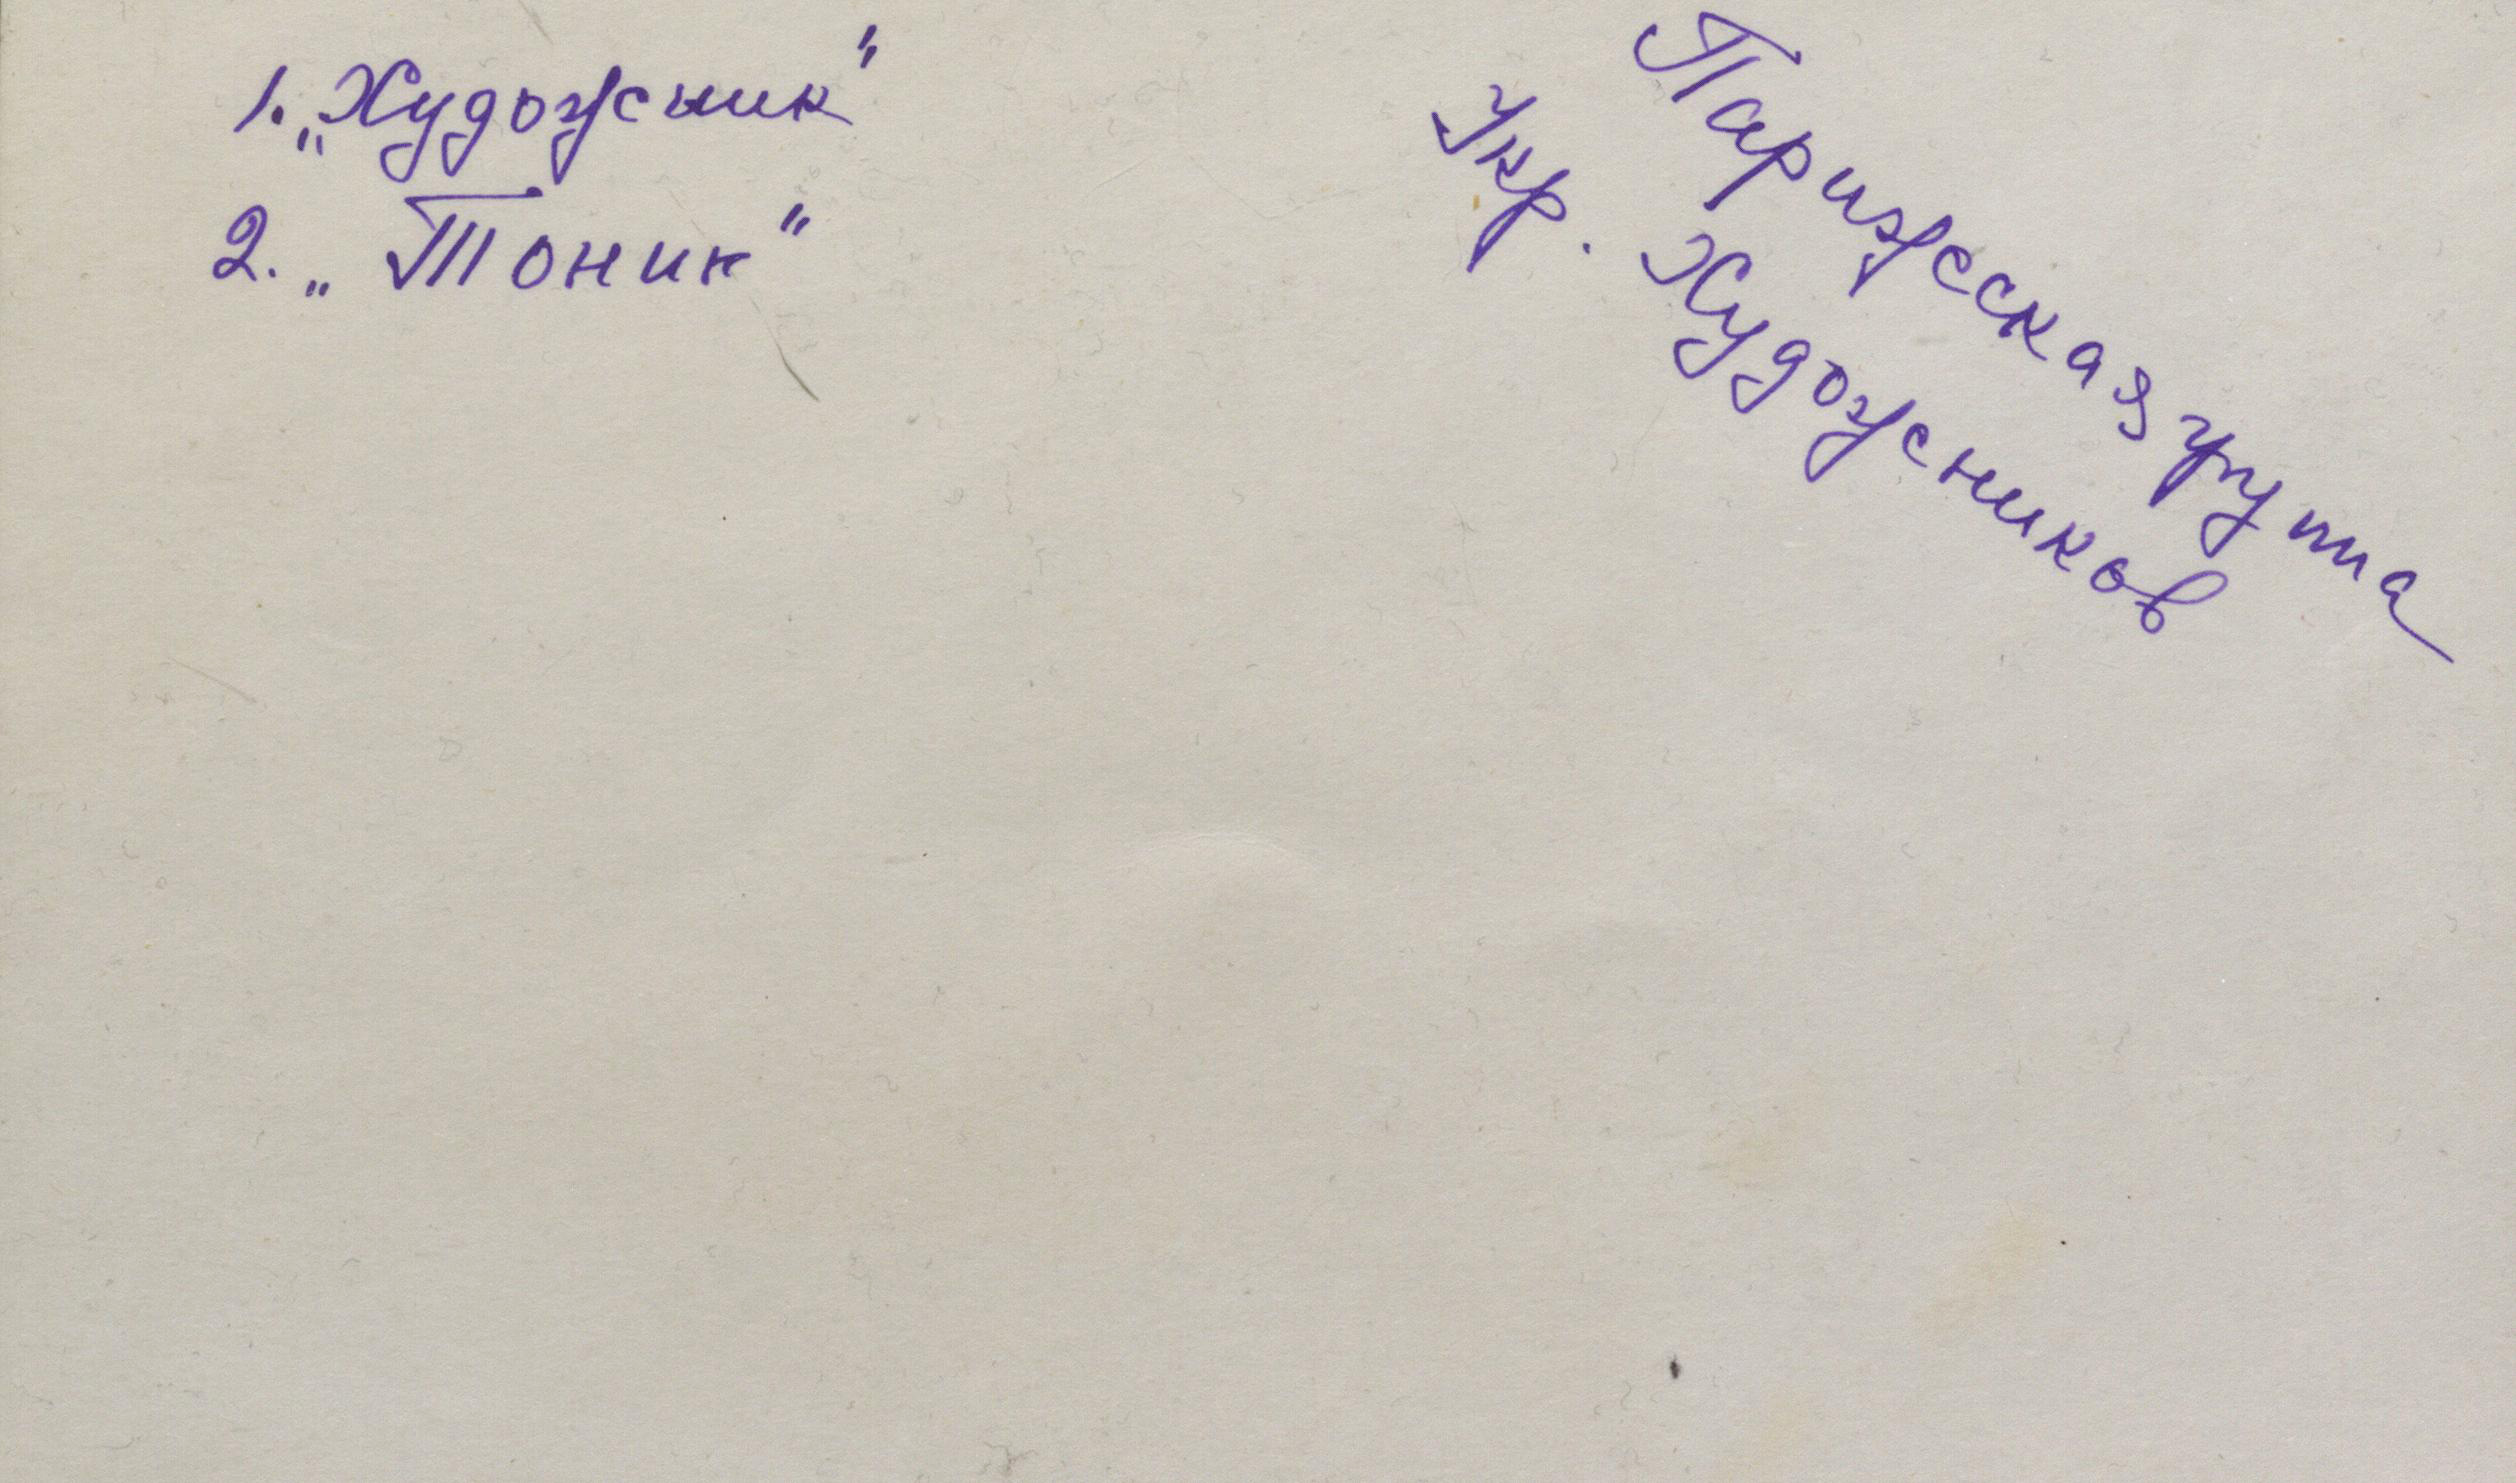 1. „Художник"
2. „Тоник"
Парижская група
Укр. Художников